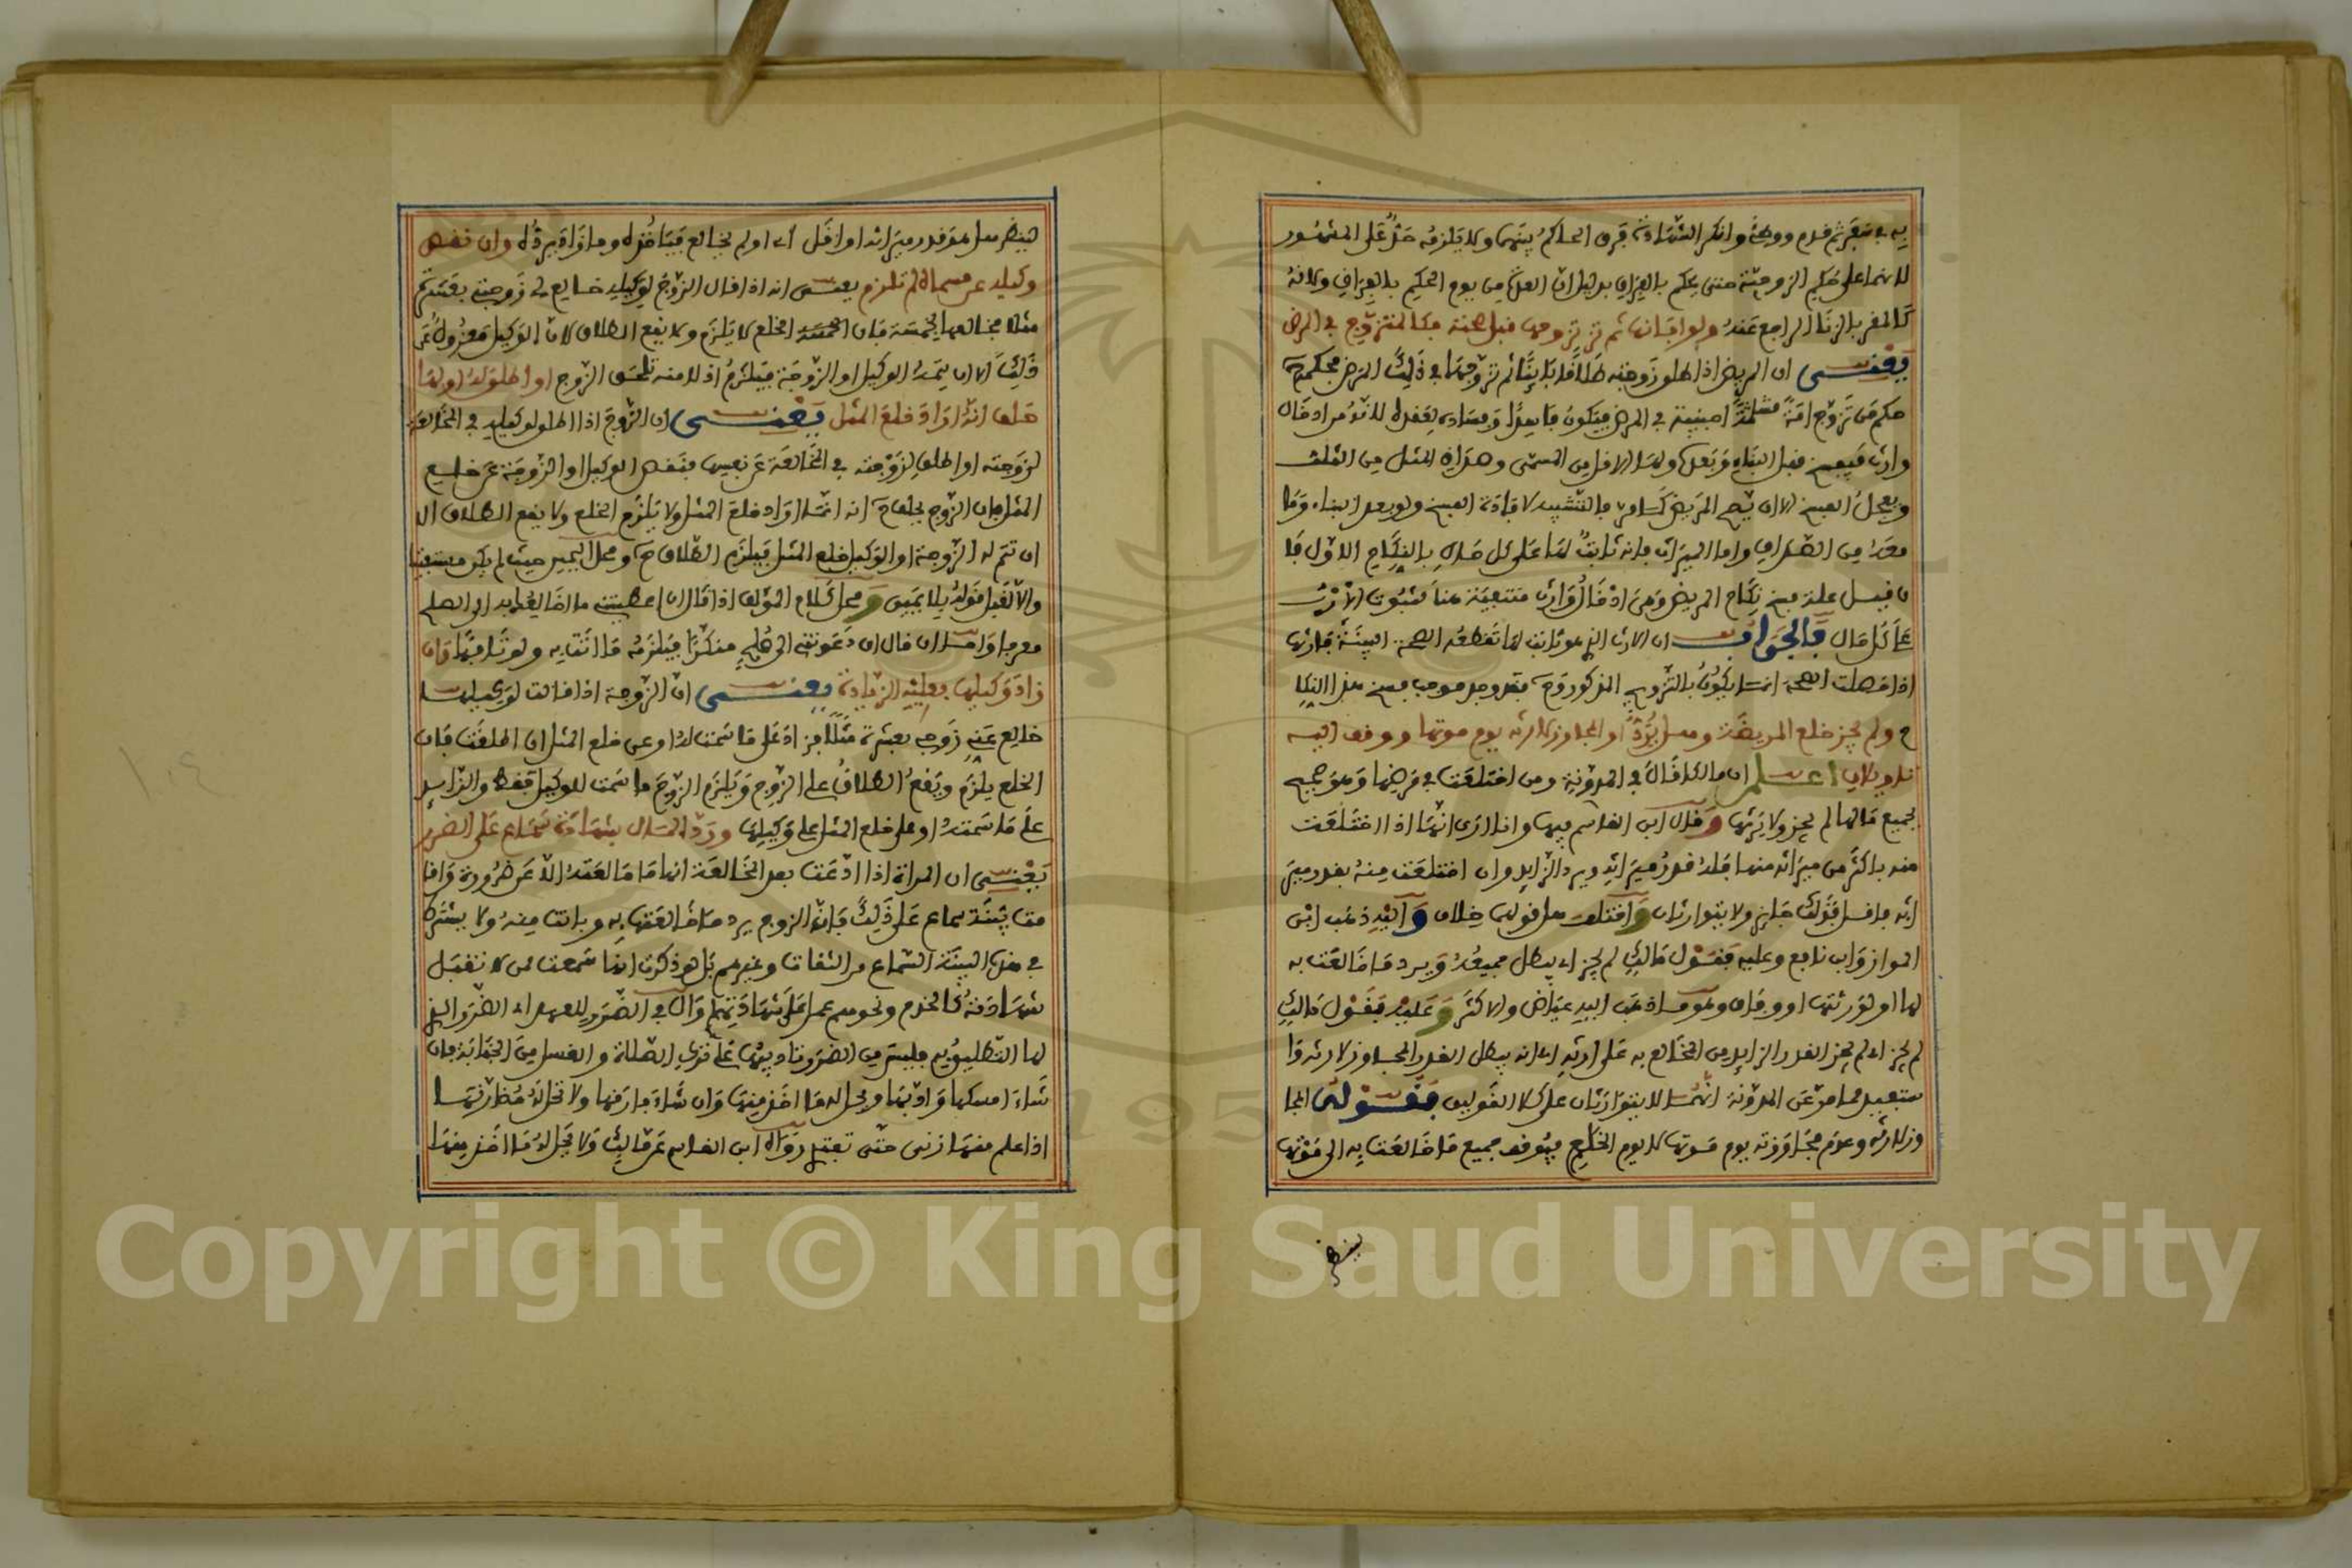 به في سفر ثم قدم ووطئ وانكر الشهادة فرق الحاكم بينهما ولا يلزمه حد على المشهور
لانهما على حكم الزوجية حتى يحكم بالفراق بدليل ان العدة من يوم الحكم بالفراق ولانه
كالمقر بالزنا الراجع عنه ولو ابانها ثم تزوجها قبل صحته فكالمتزوج في المرض
يعني ان المريض اذا طلق زوجته طلاقا بائنا ثم تزوجها في ذلك المرض فحكمه
حكم من تزوج امة مسلمة اجنبية في المرض فيكون فاسدا وفساده لعقده لانه مراد قال
وارث فيفسخ قبل البناء وبعده ولها الاقل من المسمى وصداق المثل من الثلث
ويعجل الفسخ الا ان يصح المريض كما مر فالتشبيه لافادة الفسخ ولو بعد البناء وما
معه من الصداق واما الميراث فانه ثابت لها على كل حال بالنكاح الاول فا
ن قيل علة فسخ نكاح المريض وهي ادخال وارث منتفية هنا لثبوت الارث
على كل حال فالجواب ان الارث الذي هو ثابت لها تقطعه الصحة البينة فارثها
اذا حصلت الصحة انما يكون بالتزويج المذكور وح فقد وجد موجب فسخ هذا النكا
ح ولم يجز خلع المريضة وهل يرد او المجاوز لارثه يوم موتها ووقف اليه
تاويلان اعلم ان مالكا قال في المدونة ومن اختلعت في مرضها وهو صحيح
بجميع مالها لم يجز ولا يرثها وقال ابن القاسم فيها وانا ارى انها اذا اختلعت
منه باكثر من ميراثه منها فله قدر ميراثه ويرد الزايد وان اختلعت منه بقدر مير
اثه فاقل فذلك جايز ولا يتوارثان واختلف هل قولهما خلاف واليه ذهب ابن
المواز وابن نافع وعليه فقول مالك لم يجز اي يبطل جميعه ويرد ما خالعت به
لها او لورثتها او وفاق وهو مذهب البيه عياض والاكثر وعليه فقول مالك
لم يجز اي لم يجز القدر الزايد من المخالع به على ارثه اي انه يبطل القدر المجاوز لارثه وا
ستفيد مما مر عن المدونة انهما لا يتوارثان على كلا القولين فقوله المجا
وز لارثه وعدم مجاوزته يوم موتها لا يوم الخلع فيوقف جميع ما خالعت به الى موتها
لينظر
لينظر هل هو قدر ميراثه او اقل اي او لم يخالع فياخذه وما زاد يرده وان نقص
وكيله عن مسماه لم تلزم يعني انه اذا قال الزوج لوكيله خالع لي زوجتي بعشرة
مثلا فخالعها بخمسة فان الخلع لا يلزم ولا يقع الطلاق لان الوكيل معزول عن
ذلك الا ان يتمه الوكيل او الزوجة فيلزم اذ لا منة تلحق الزوج او اطلق له او لها
حلف انه اراد خلع المثل يعني ان الزوج اذا اطلق لوكيله في المخالعة
لزوجته او اطلق لزوجته في المخالعة عن نفسها فنقص الوكيل او الزوجة عن خلع
المثل فان الزوج يحلف انه انما اراد خلع المثل ولا يلزم الخلع ولا يقع الطلاق الا
ان تتم له الزوجة او الوكيل خلع المثل فيلزم الطلاق ح ومحل اليمين حيث لم يكن مستفتيا
والا قبل قوله بلا يمين ومحل كلام المؤلف اذا قال ان اعطيتني ما اخالعك به او الصلح
معرفا واما ان قال ان دعوتني الى صلح منكرا فيلزمه ما اتت به ولو تافها وان
زاد وكيلها فعليه الزيادة يعني ان الزوجة اذا قالت لوكيلها
خالع عني زوجي بعشرة مثلا فزاد على ما سمت له او عن خلع المثل ان اطلقت فان
الخلع يلزم ويقع الطلاق على الزوج ويلزم الزوج ما سمت للوكيل فقط والزايد
على ما سمت او على خلع المثل على وكيلها ورد المال بشهادة سماع على الضرر
يعني ان المراة اذا ادعت بعد المخالعة انها ما خالعته الا عن ضرورة واقا
مت بينة سماع على ذلك فان الزوج يرد ما خالعته به وبانت منه ولا يشترط
في هذه البينة السماع من الثقات وغيرهم بل لو ذكرت انها سمعت ممن لا تقبل
شهادته كالخدم ونحوهم عمل على شهادتهم وال في الضرر للعهد اي الضرر الذي
لها التطليق به فليس من الضرر تاديبها على ترك الصلاة والغسل من الجنابة فان
شاء امسكها وادبها ويحل له ما اخذ منها وان شاء فارقها ولا تحل له مضارتها
اذا علم منها زنى حتى تفتدي رواه ابن القاسم عن مالك ولا يحل له ما اخذ منها
١٠٤
Copyright © King Saud University